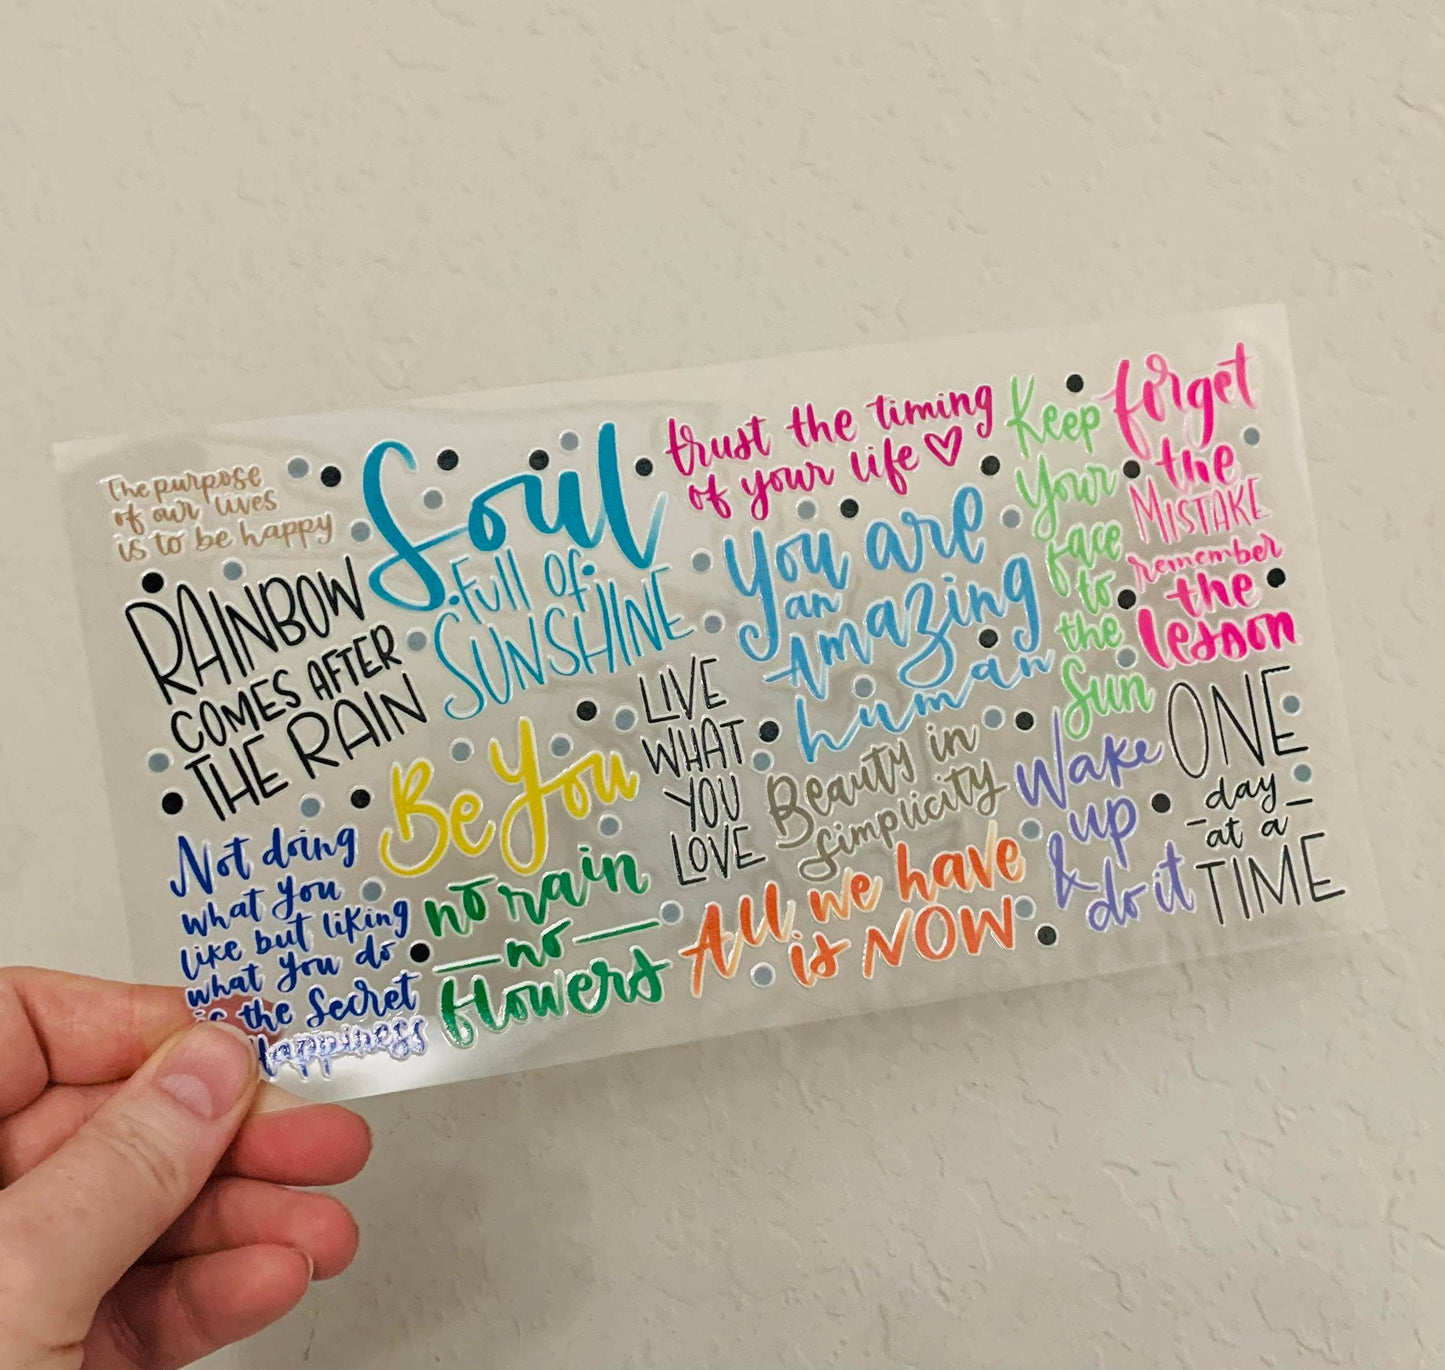 The purpose
of our lives
is to be happy
RAINBOW
COMES AFTER
THE RAIN
Not doing
what you
like but liking
what you do
is the Secret
Happiness
Soul
Full of
SUNSHINE
Be You
no rain
no
flowers
trust the timing
of your life
You are
an
Amazing
human
LIVE
WHAT
YOU
LOVE
Beauty in
simplicity
All we have
is NOW
Keep
Your
face
to
the
Sun
Wake
up
&
do it
forget
the
MISTAKE
remember
the
lesson
ONE
day
at a
TIME